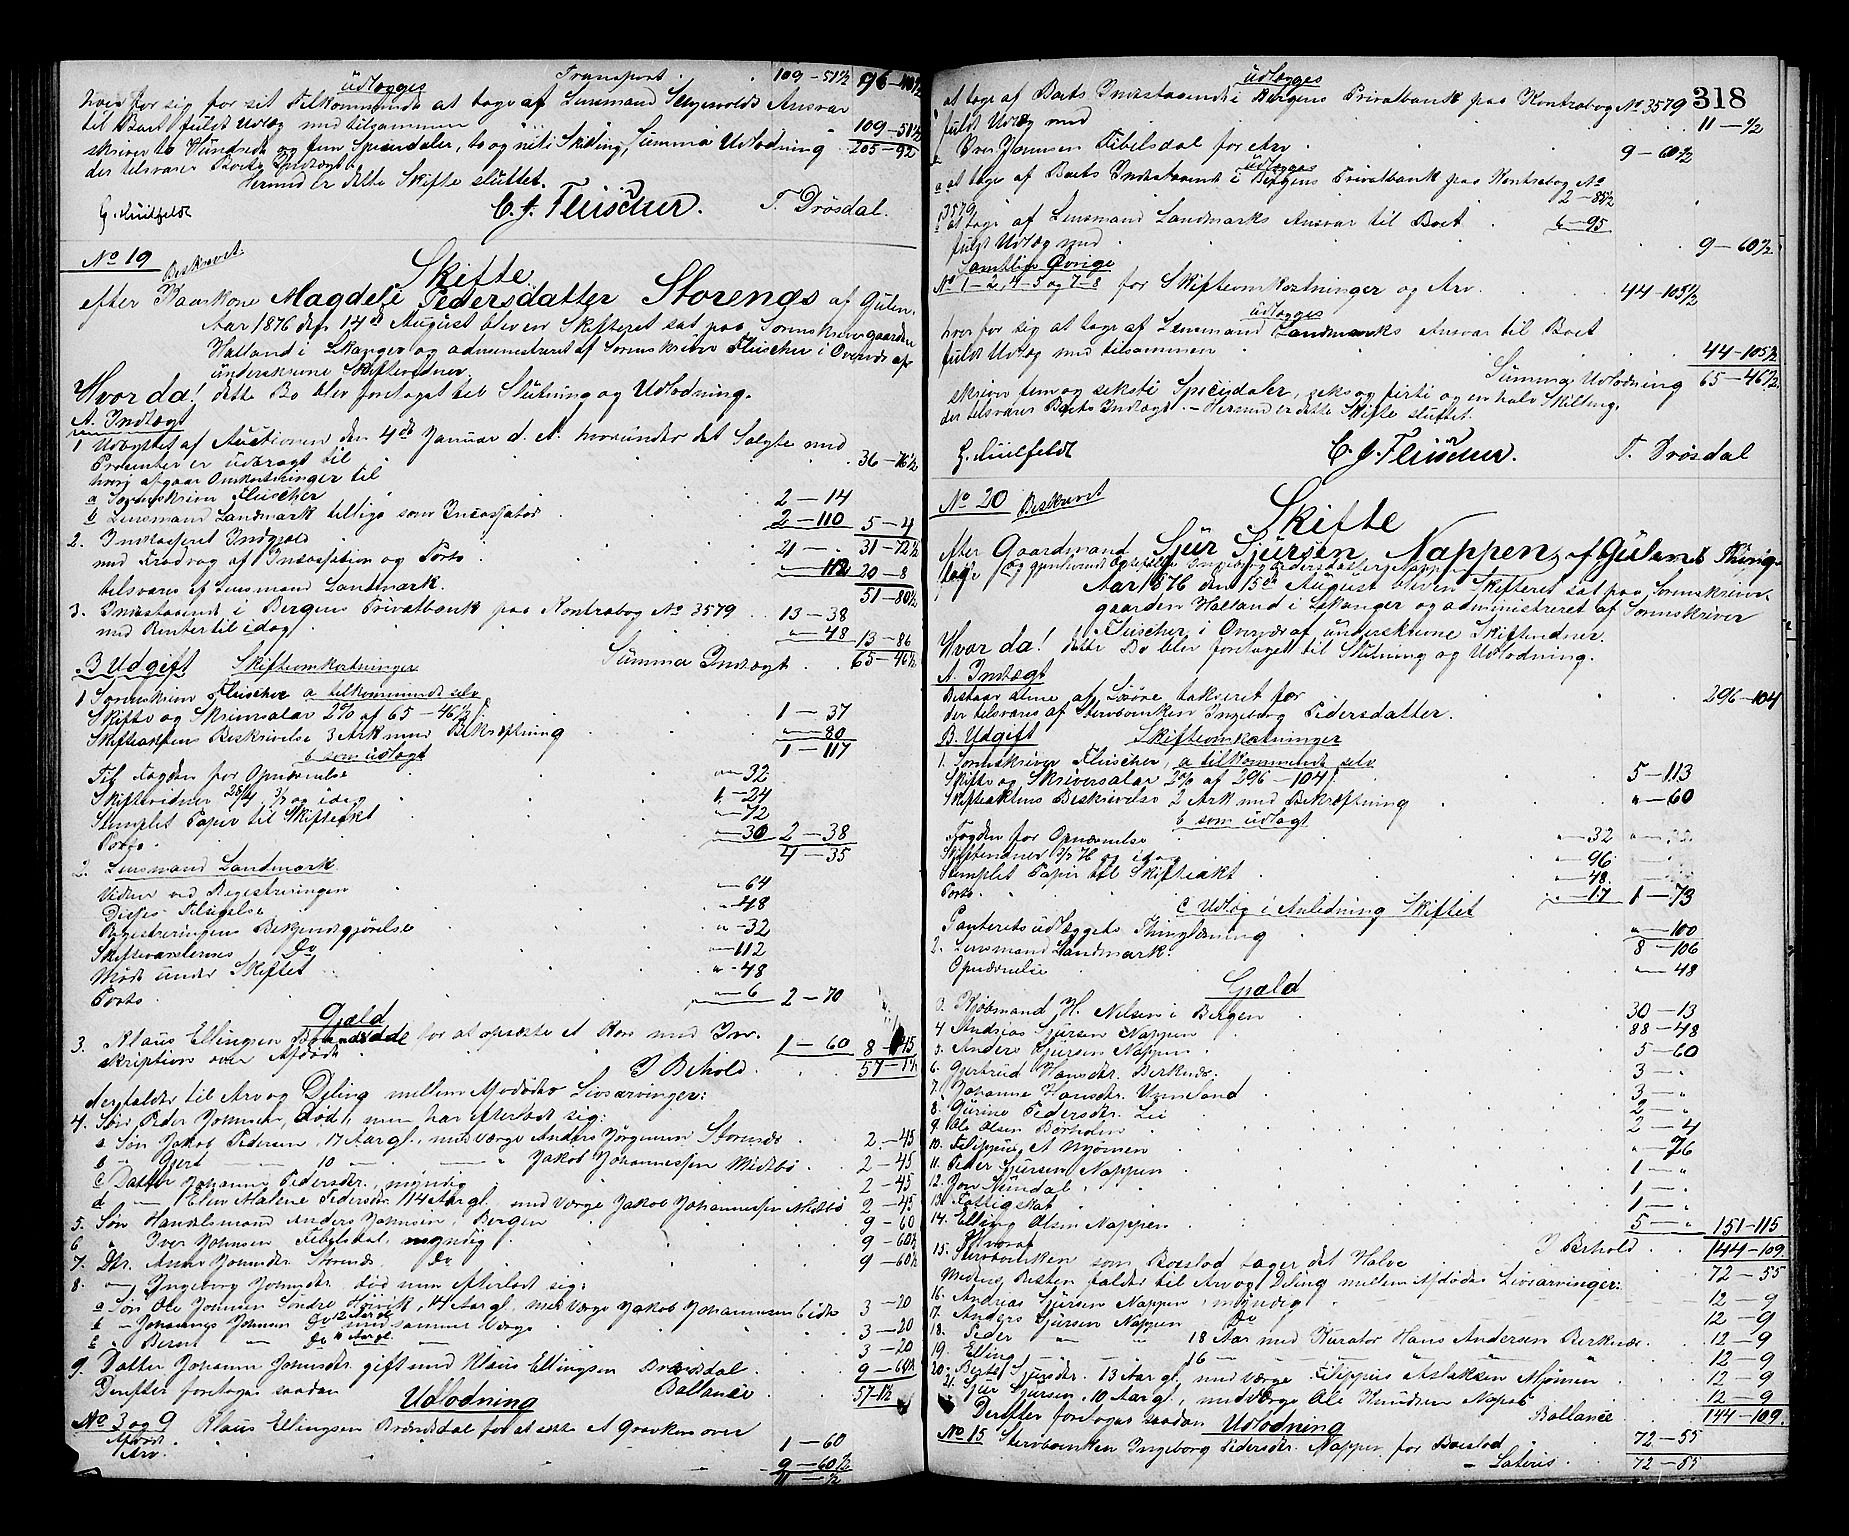 Transport. 109-51½ 96-40½
hver for sig for sit Tilkommende udlægges at tage af Lensmand Ansvar
til Boet fuldt Udlæg med tilsammen 109-51½
skriver to Hundrede og fem Speciedaler, to og niti Skilling, Summa Udlodning 205-92
der tilsvarer Boets Indtægt.
Hermed er dette Skifte sluttet.
G. Huitfeldt C. J. Fleischer. T. Drøsdal.
No 19 Beskrevet.
Skifte
efter Kaarkone Magdeli Pedersdatter Storenæs af Gulen.
Aar 1876 den 14de August blev en Skifteret sat paa Sorenskrivergaarden
Halland i Lekanger og administreret af Sorenskriver Fleischer i Overvær af
underskrevne Skiftevidner.
Hvor da! dette Bo blev foretaget til Slutning og Udlodning.
A. Indtægt
1 Udbyttet af Auctionen den 4de Januar d. A. hvorunder det Solgte med
Procenter er udbragt til 36-76½
hvori afgaar Omkostninger til
a Sorenskriver Fleischer 2-14
b Lensmand Landmark tillige som Incassator 2-110 5-4
2. Indkasseret Indgjæld 21- 31-72½
med Fradrag af Incassation og Porto "-112 20-8
tilsvares af Lensmand Landmark. 51-80½
3. Indestaaende i Bergens Privatbank paa Kontrabog No 3579 13-38
med Renter til idag "-48 13-86
Summa Indtægt 65-46½
B Udgift Skifteomkostninger
1 Sorenskriver Fleischer a tilkommende selv
Skifte og Skriversalær 2% af 65-46½ 1-37
Skifteaktens Beskrivelse 3 Ark med Bekræftning "-80
b som udlagt 1-117
Til Fogden for Opnævnelse "-32
Skiftevidner 28/4 3/7 og idag 1-24
Stemplet Papir til Skifteakt "-72
Porto "-30 2-38
4-35
2. Lensmand Landmark
Vidner ved Registreringen "-64
Disses Tilsigelse "-48
Registreringens Bekjendtgjørelse "-32
Skiftevarslernes Do "-112
Møde under Skiftet "-48
Porto "-6 2-70
Gjæld
3. Klaus Ellingsen for at opsætte et Kors med Inskription over Afdøde 1-60 8-45
I Behold 57-1½
der falder til Arv og Deling mellem Afdødes Livsarvinger:
4. Søn Peder Johnsen, død, men har efterladt sig:
a Søn Jakob Pedersen, 17 Aar gl., med Værge Anders Jørgensen Storenæs 2-45
b " Gjert — 10 — " Jakob Johannessen Midtbø 2-45
c Datter Johanne Pedersdtr., myndig 2-45
d — Elen Malene Pedersdtr 14 Aar gl. med Værge Jakob Johannessen Midtbø 2-45
5. Søn Handelsmand Anders Johnsen i Bergen 9-60½
6 " Iver Johnsen Tibelsdal, myndig 9-60½
7. Dtr. Anne Johnsdtr Storenæs Do 9-60½
8. — Ingeborg Johnsdtr. død men efterladt sig:
a Søn Ole Johnsen Søndre Høivik, 14 Aar gl., med Værge Jakob Johannessen 3-20
b " Johannes Johnsen Do 12 Aar gl. med samme Værge 3-20
c " Bernt Do 3-20
9. Datter Johanne Johnsdtr. gift med Klaus Ellingsen 9-60½
Derefter foretoges saadan Ballance 57-1½
Udlodning
No 3 og 9 Klaus Ellingsen for at sætte et Gravkors over
Afdøde 1-60
Arv 9-60½
11-½
318
at tage af Boets Indestaaende i udlægges Bergens Privatbank paa Kontrabog No 3579
fuldt Udlæg med 11-½
Iver Johnsen Tibelsdal for Arv 9-60½
udlægges
a at tage af Boets Indestaaende i Bergens Privatbank paa Kontrabog No
3579 2-85½
b at tage af Lensmand Landmarks Ansvar til Boet 6-95
fuldt Udlæg med 9-60½
Samtlige Øvrige
No 1-2, 4-5 og 7-8 for Skifteomkostninger og Arv 44-105½
udlægges
hver for sig at tage af Lensmand Landmarks Ansvar til Boet
fuldt Udlæg med tilsammen 44-105½
Summa Udlodning 65-46½
skriver fem og seksti Speciedaler, seks og firti og en halv Skilling,
der tilsvarer Boets Indtægt. — Hermed er dette Skifte sluttet.
G. Huitfeldt C. J. Fleischer. T. Drøsdal
No 20 Beskrevet
Skifte
efter Gaardmand Sjur Sjursen Nappen, af Gulens Thinglag
Aar 1876 den 15de August blev en Skifteret sat paa Sorenskrivergaarden
Halland i Lekanger og administreret af Sorenskriver
Fleischer i Overvær af underskrevne Skiftevidner.
Hvor da! dette Bo blev foretaget til Slutning og Udlodning.
A. Indtægt
Bestaar alene af Løsøre takseret for 296-104
der tilsvares af Stervboenken Ingeborg Pedersdatter.
B. Udgift Skifteomkostninger
1. Sorenskriver Fleischer, a tilkommende selv
Skifte og Skriversalær 2% af 296-104 5-113
Skifteaktens Beskrivelse 2 Ark med Bekræftning "-60
b som udlagt
Fogden for Opnævnelse "-32
Skiftevidner 3/7 76 og idag "-96
Stemplet Papir til Skifteakt "-48
Porto "-17 1-73
c Udlæg i Anledning Skiftet
Panterets udlæggets Thinglæsning "-100
2. Lensmand Landmark. 8-106
Opnævnelse "-48
Gjæld
3. Kjøbmand H. Nilsen i Bergen 30-13
4 Andreas Sjursen Nappen 88-48
5. Anders Sjursen Nappen 5-60
6. Gjertrud Hansdtr. Berknæs 3-"
7. Johanne Hansdtr. 3-"
8. Gurine Pedersdtr. Lie 2-"
9. Ole Olsen 2-4
10. Filippus A Mjømen "-76
11. Peder Sjursen Nappen 1-"
12. Jon Nundal 1-"
13. Fattigskat 1-"
14. Elling Olsen Nappen 5-" 151-115
I Behold 144-109
15. Hvoraf Stervboenken som Boeslod tager det Halve 72-55
Medens Resten falder til Arv og Deling mellem Afdødes Livsarvinger:
16. Andreas Sjursen Nappen, myndig 12-9
17. Anders Sjursen Nappen Do 12-9
18. Peder " " 18 Aar med Kurator Hans Andersen Berknæs 12-9
19. Elling — — 16 — 12-9
20. Berte Sjursdtr. 13 Aar gl., med Værge Filippus Aslaksen Mjømen 12-9
21. Sjur Sjursen, 10 Aar gl., med Værge Ole Knudsen Nappen 12-9
Derefter foretoges saadan Udlodning Ballance 144-109
No 15 Stervboenken Ingeborg Pedersdtr. Nappen for Boeslod 72-55
Lateris 72-55